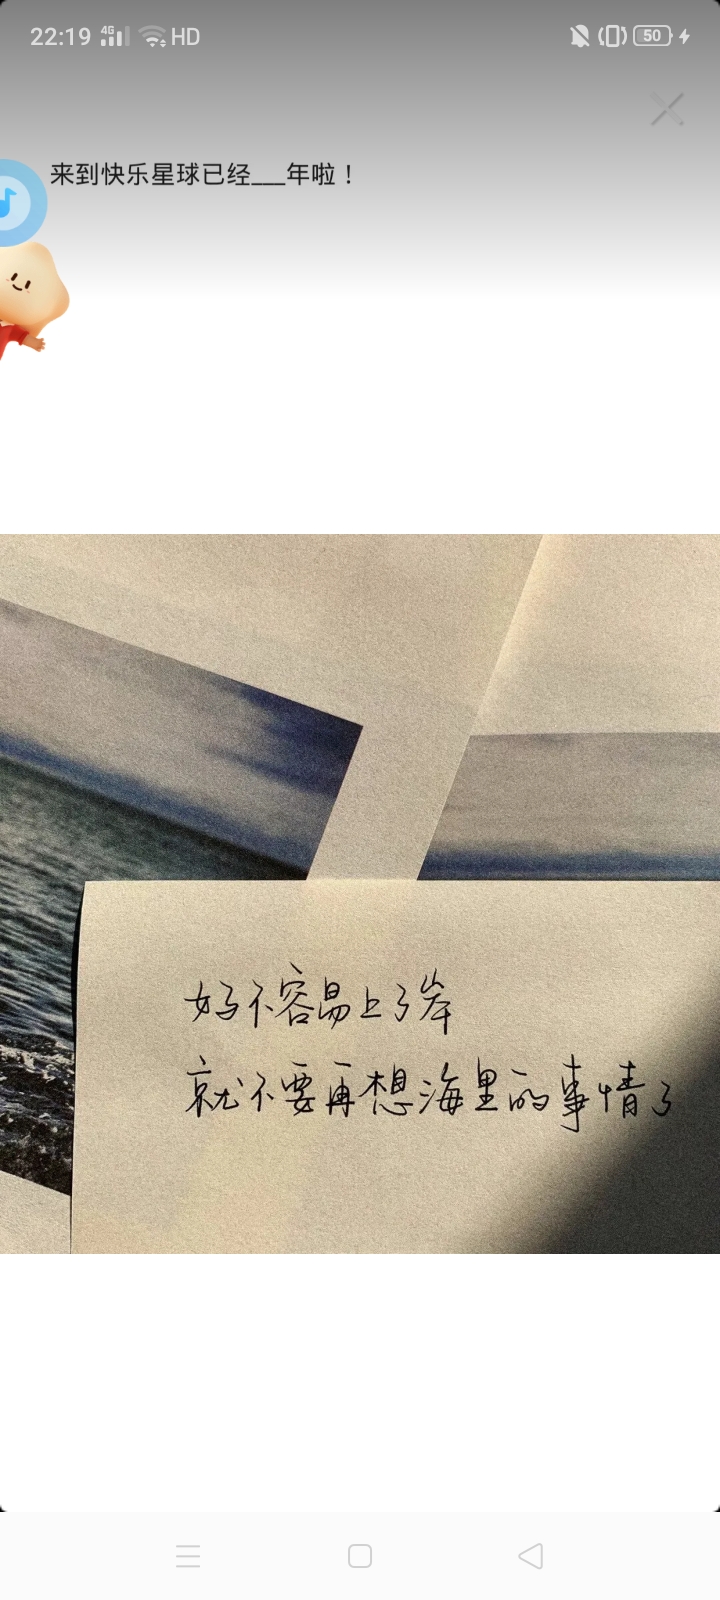 22:19 4G HD 50
来到快乐星球已经___年啦！
好不容易上了岸
就不要再想海里的事情了